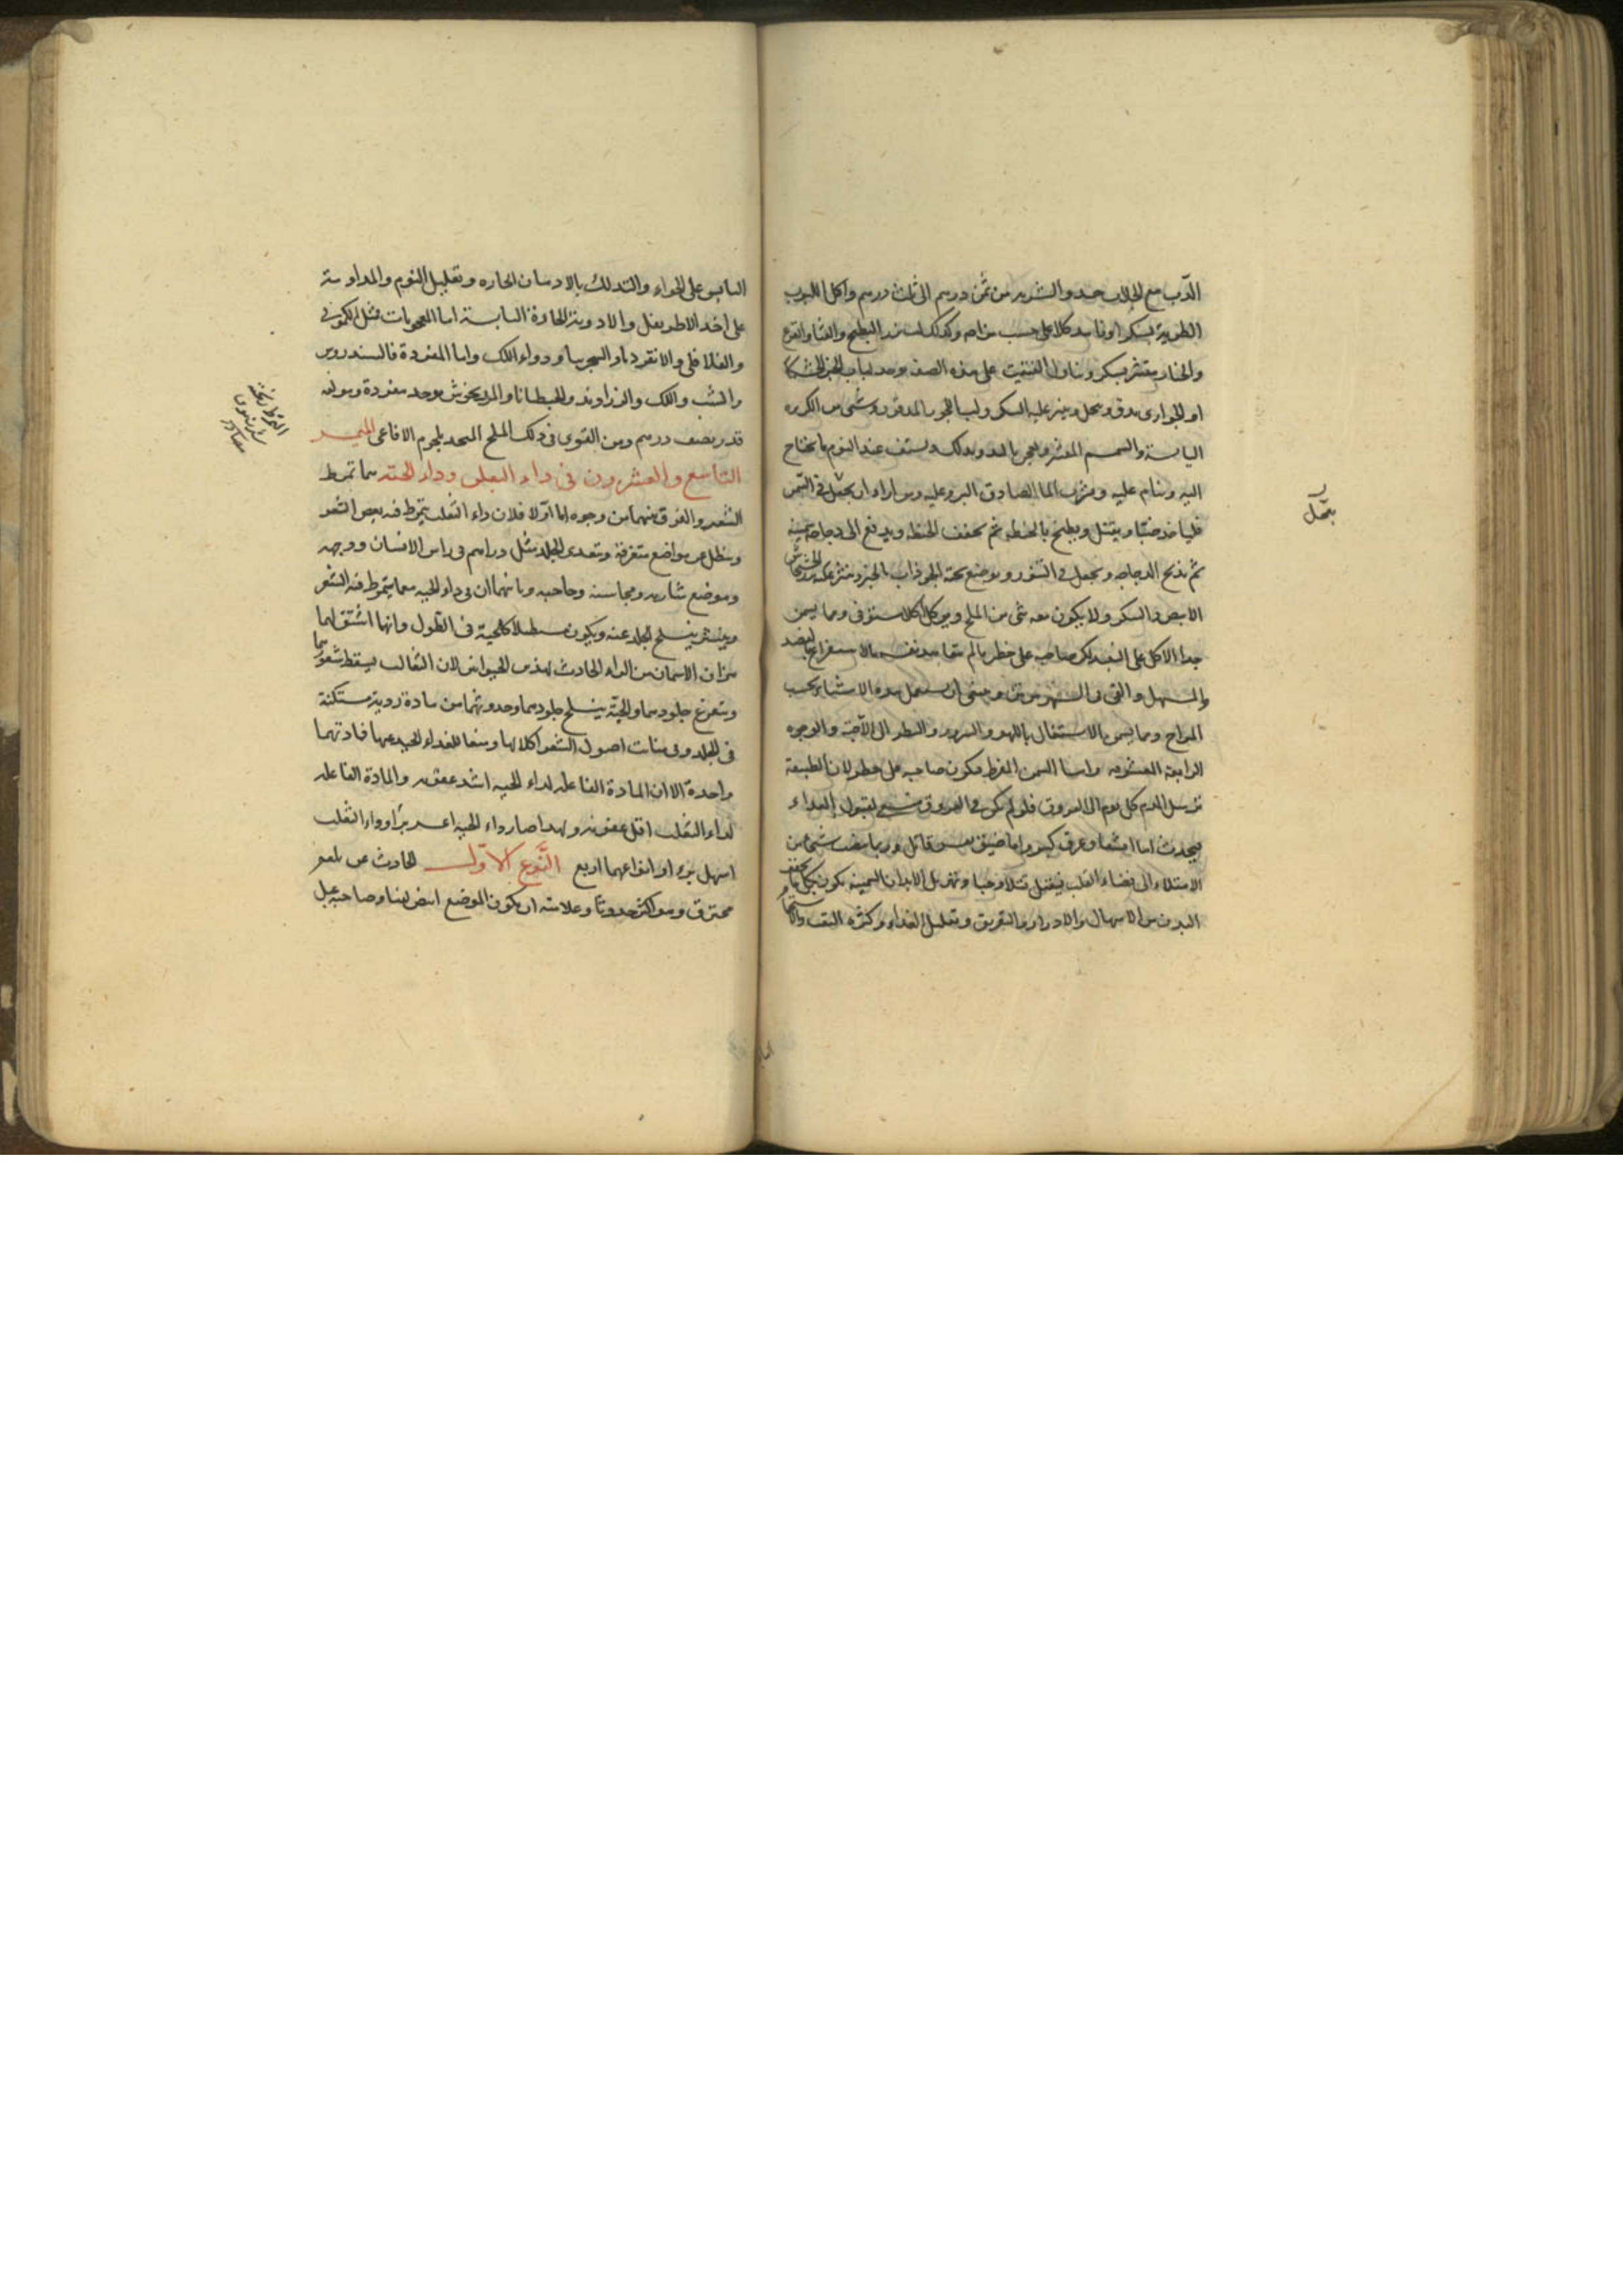 الدّب مع الجلاب جيد والشربه من ثمن درهم الى ثلث درهم واكل اللبوب
الطريه بسكر او فانيد كلا على حسب مزاجه وكذلك لب بزر البطيخ والقثا والقرع
والخيار مقشر بسكر وتناول الفتيت على هذه الصفه يوخذ لباب الخبز الخشكار
او الحوارى يدق وينخل وينثر عليه السكر ولب اللوز المدقوق وشى من الكزبره
اليابسة والسمسم المقشر ويستف عند النوم ما يحتاج
اليه وينام عليه ويشرب الما الصادق البرد عليه ومن اراد ان يعجّل فى السمن
فلياخذ ضبّا ويقتل ويطبخ بالحنطه ثم تجفف الحنطه ويدفع الى دجاجة سمينه
ثم تذبح الدجاجه وتجعل فى التنور ويوضع تحته الجوذاب بالخبز وينثر عليه الخشخاش
الابيض والسكر ولا يكون معه شى من الملح ويوكل اكلا مستوفى ومما يسمن
جدا الاكل على الشبع لكن صاحبه على خطر ما لم يتعاهد نفسه بالاستفراغ بالفصد
والمسهل والقى فى الشهر مرتين وينبغى ان يستعمل هذه الاشياء بحسب
المزاج ومما يسمن الاشتغال باللهو والسرور والنظر الى الاحبة والوجوه
الرايعة المعشوقه واما السمن المفرط فيكون صاحبه على خطر لان الطبيعة
ترسل الدم كل يوم الى العروق فلو لم يكن فى العروق متسع لقبول الغذاء
فيحدث اما انشقاق عرق كبير واما ضيق نفس قاتل وربما ينصب شى من
الامتلاء الى فضاء القلب فيقتل قتلا وحيا وتهزيل الابدان السمينه يكون بكل ما يجفف
البدن من الاسهال والادرار والتعريق وتقليل الغذاء وكثره التعب والاستحمام
يتعجّل
اليابس على الخواء والتدلك بالادهان الحاره وتقليل النوم والمداومة
على اخذ الاطريفل والادوية الحادة اليابسة اما المعجونات فمثل الكمونى
والفلافلى والانقرديا والسجرينا ودواء اللك واما المفردة فالسندروس
والشب واللك والزراوند والجنطيانا والمرزنجوش يوخذ مفردة ومولفه
قدر نصف درهم ومن القوى فى ذلك الملح المتخذ بلحوم الافاعى الفصل
التاسع والعشرون فى داء الثعلب وداء الحيّة هما تمرط
الشعر والفرق بينهما من وجوه اما اوّلا فلان داء الثعلب يتمرط فيه بعض الشعر
ويظل عن مواضع متفرقة ويتعدى الجلد مثل دراهم فى راس الانسان ووجهه
وموضع شاربه ومحاسنه وحاجبه وثانيهما ان فى داء الحيه معما يتمرط فيه الشعر
وينتثر ينسلخ الجلد عنه ويكون مستطيلا كالحيّة فى الطول وانما اشتق لهما
هذان الاسمان من الداء الحادث لهذين الحيوانين لان الثعالب يسقط شعورها
ويتمرغ جلودها والحيّة ينسلخ جلودها وحدوثهما من مادة رديّة مستكنّة
فى الجلد وفى منابت اصول الشعر اكلالها ومنعا للغذاء الجيد عنها فمادتهما
واحدة الا ان المادة الفاعله لداء الحيه اشد عفونه والمادة الفاعله
لداء الثعلب اقل عفونه ولهذا صار داء الحيه اعسر برًا وداء الثعلب
اسهل برءا وانواعهما اربع النّوع الاوّل الحادث عن بلغم
محترق وهو اكثر حدوثًا وعلامته ان يكون الموضع ابيض لينا وصاحبه عبل